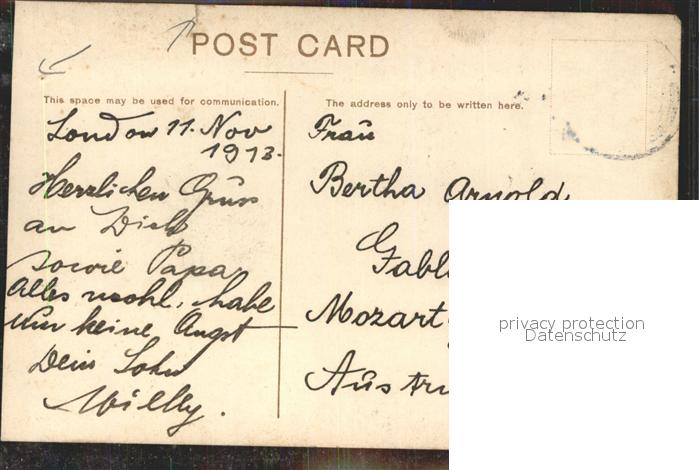 POST CARD
This space may be used for communication.
London 11. Nov
1913.
Herzlichen Gruss
an Dich
sowie Papa
Alles wohl, habe
nur keine Angst
Dein Sohn
Willy.
The address only to be written here.
Frau
Bertha Arnold
Gabl
Mozart
Austr
privacy protection
Datenschutz